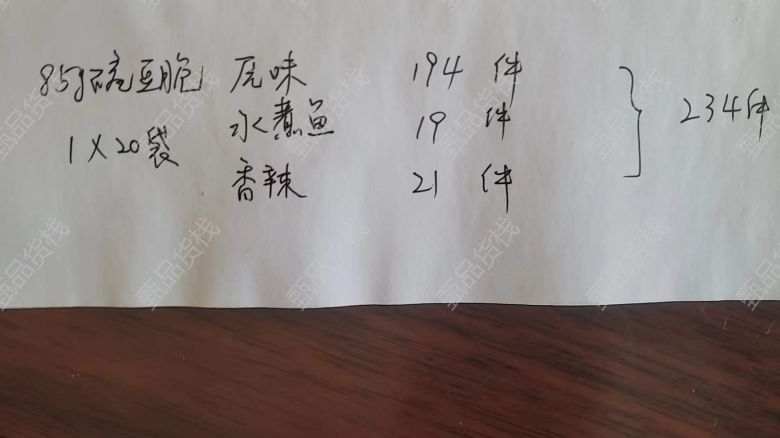 85g碗豆脆 原味 194 件
水煮鱼 19 件
1×20袋
香辣 21 件
234件
甄品货栈